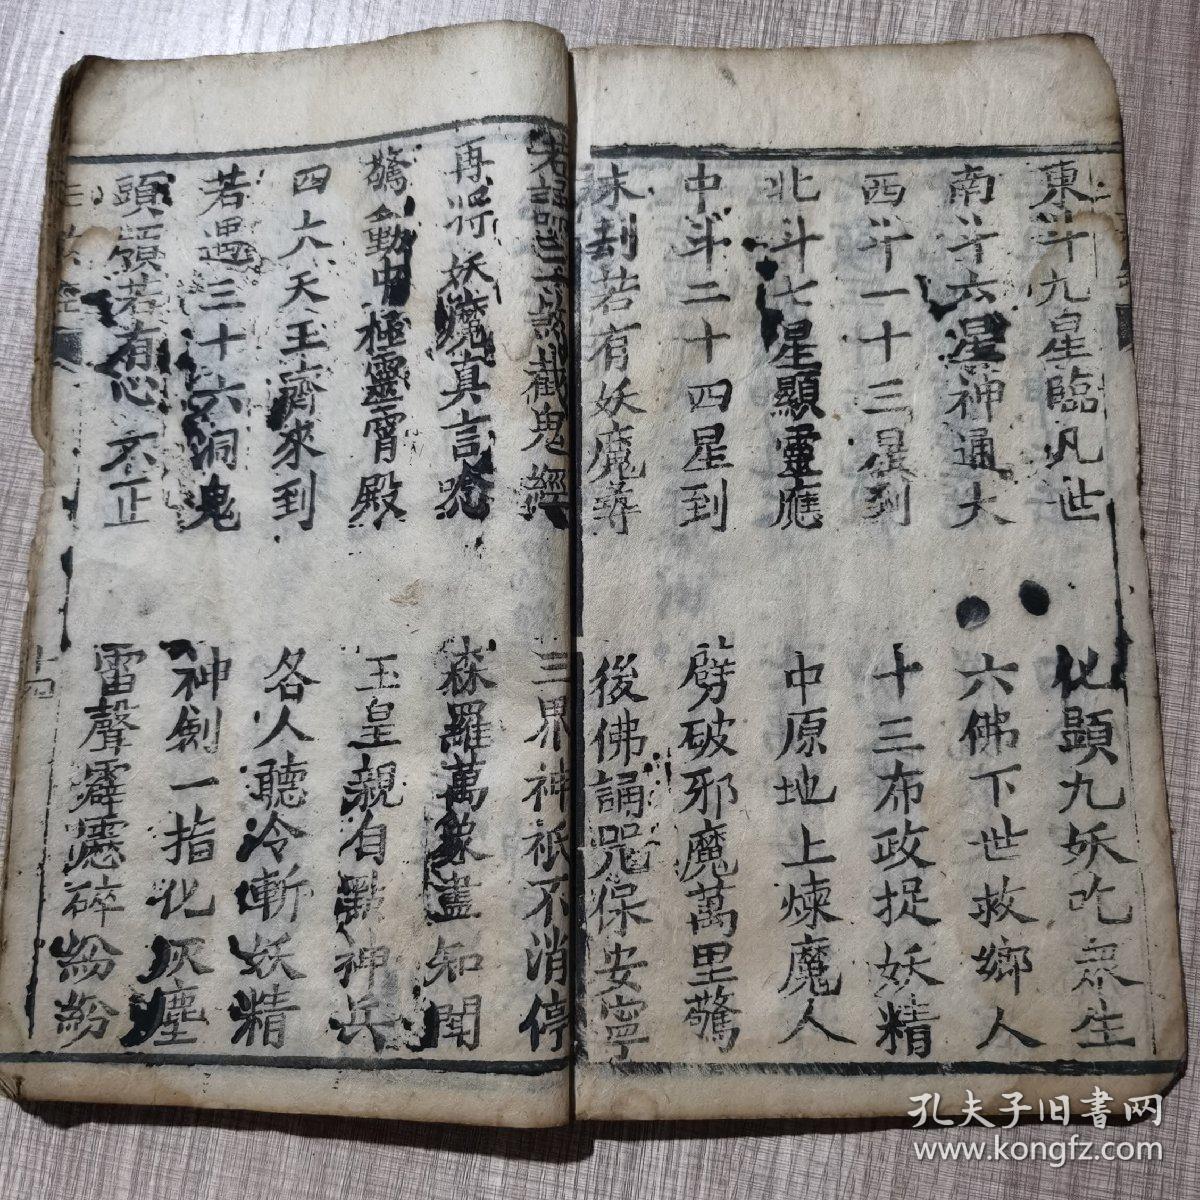 東斗九星臨凡世 化顕九妖吃衆生
南斗六星神通大 六佛下世救鄉人
西斗一十三星到 十三布政捉妖精
北斗七星顯靈應 中原地上煉魔人
中斗二十四星到 劈破邪魔萬里驚
末刼若有妖魔 後佛誦咒保安寧
截鬼經 三界神祇不消停
再將妖魔真言唸 森羅萬象盡知聞
驚動中極靈霄殿 玉皇親自點神兵
四大天王齊來到 各人聽冷斬妖精
若遇三十六洞鬼 神劍一指化灰塵
頭領若有心不正 雷聲霹靂碎紛紛
孔夫子旧書网
www.kongfz.com